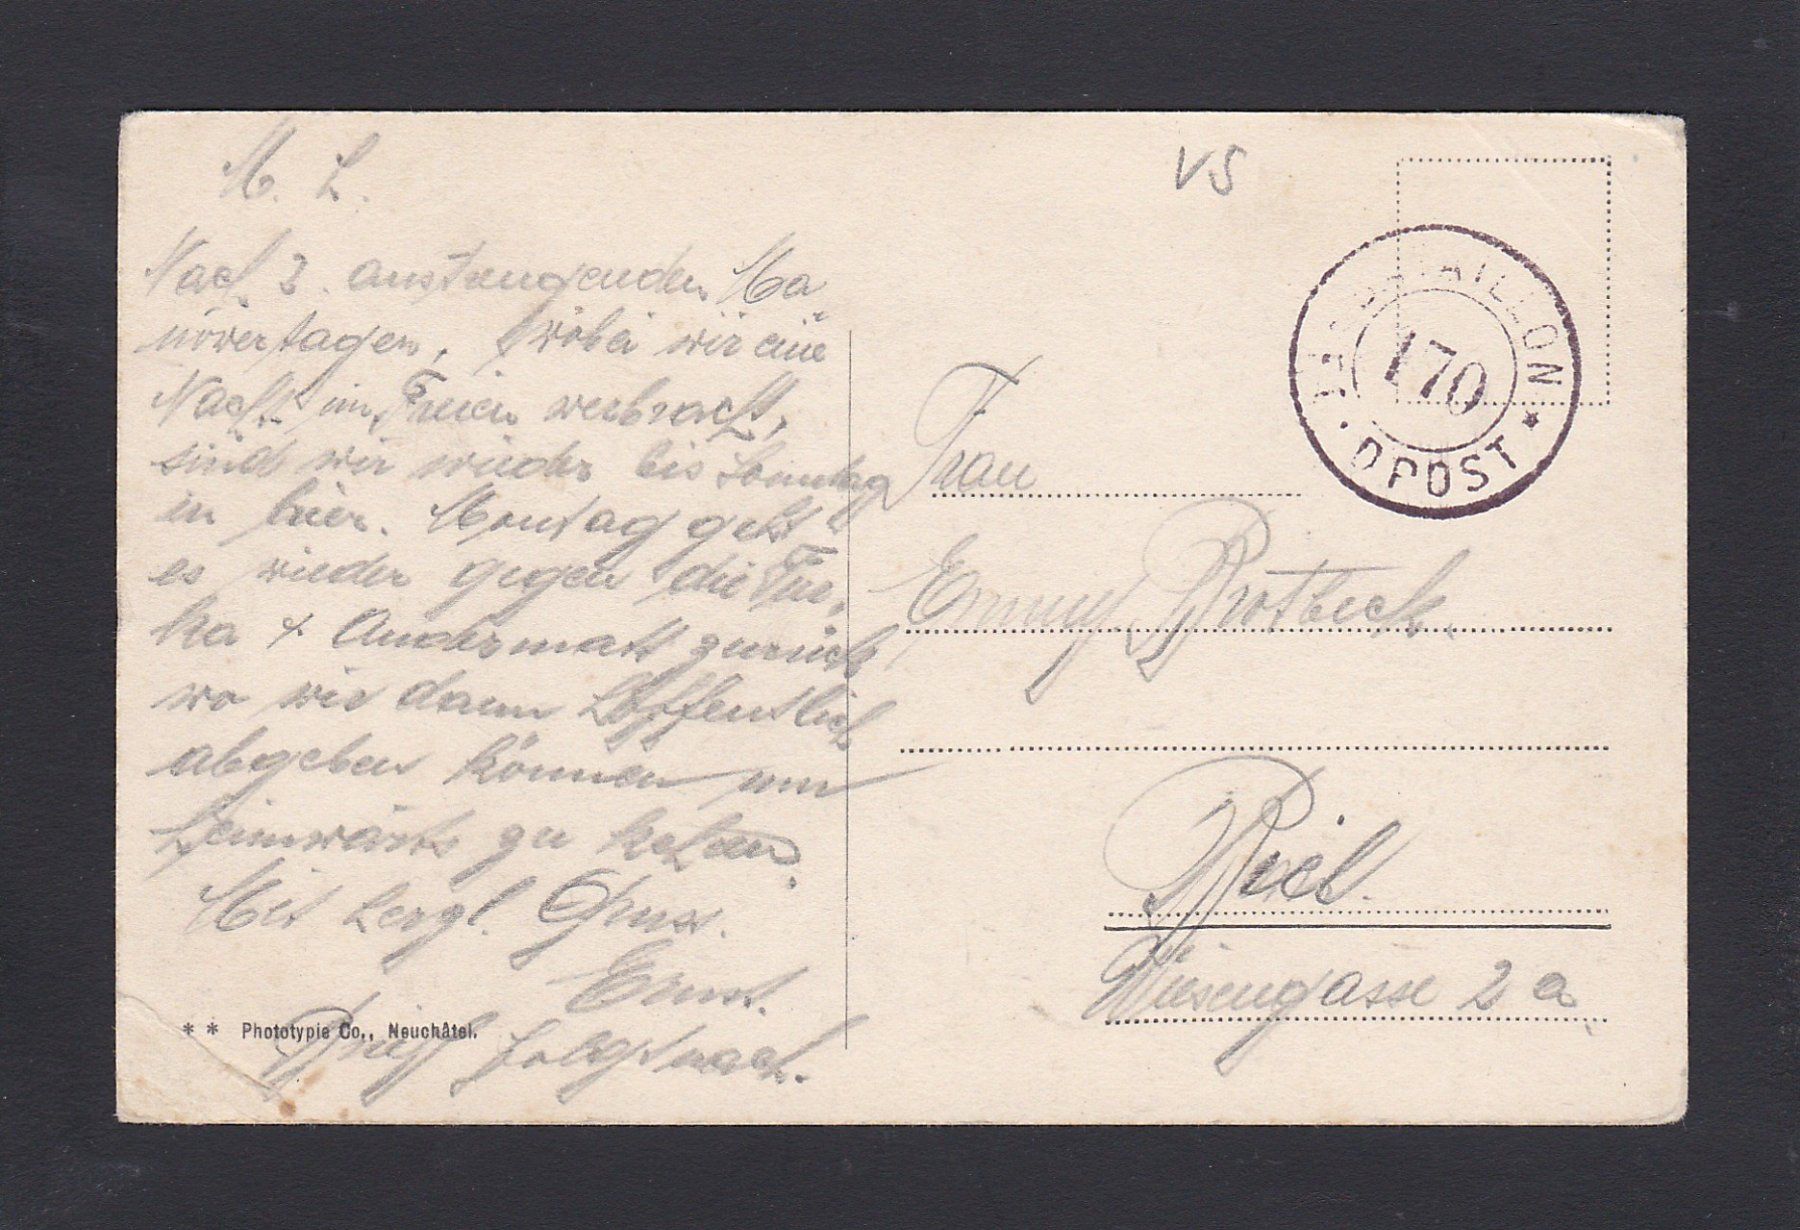 M. L.
Nach 3 anstrengenden Ma
növertagen, wobei wir eine
Nacht im Freien verbracht,
sind wir wieder bis Sonntag
in hier. Montag geht
es wieder gegen die Fur-
ka + Andermatt zurück
wo wir dann hoffentlich
abgeben können um
heimwärts zu kehren.
Mit herzl. Gruss.
Ernst.
Brief folgt nach.
** Phototypie Co., Neuchâtel.
VS
BATAILLON
170
DPOST *
Frau
Emmy Brotbeck.
Biel.
Wiesengasse 2 a.